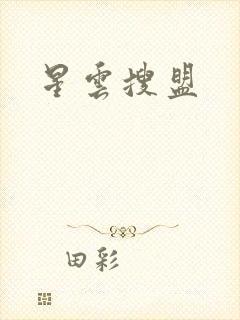 星雲搜盟
田彩